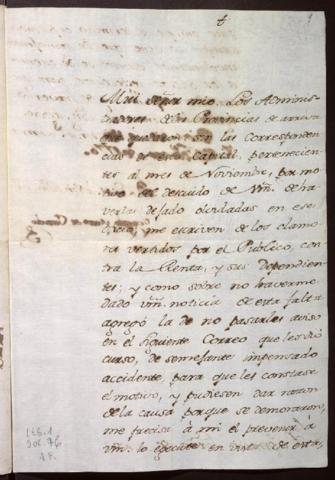 1
Mui Señor mio. Los Adminis-
tradores de las Provincias de arriva
las Corresponden-
cias de esta Capital, pertenecien-
tes al mes de Noviembre, por mo-
tivo del descuido de Vm. de ha-
verlas dejado olvidadas en ese
oficio, me escriven de los clamo-
res vertidos por el Publico, con-
tra la Renta, y sus dependien-
tes; y como sobre no haverme
dado vm. noticia de esta falta
agregó la de no pasarles aviso
en el siguiente Correo que les dió
curso, de semejante impensado
accidente, para que les constase
el motivo, y pudiesen dar razon
de la causa porque se demoraron,
me precisa á mi el prevenir a
vm. lo egecute en vista de esta,
LEG. 1
DOC. 76
1 F.